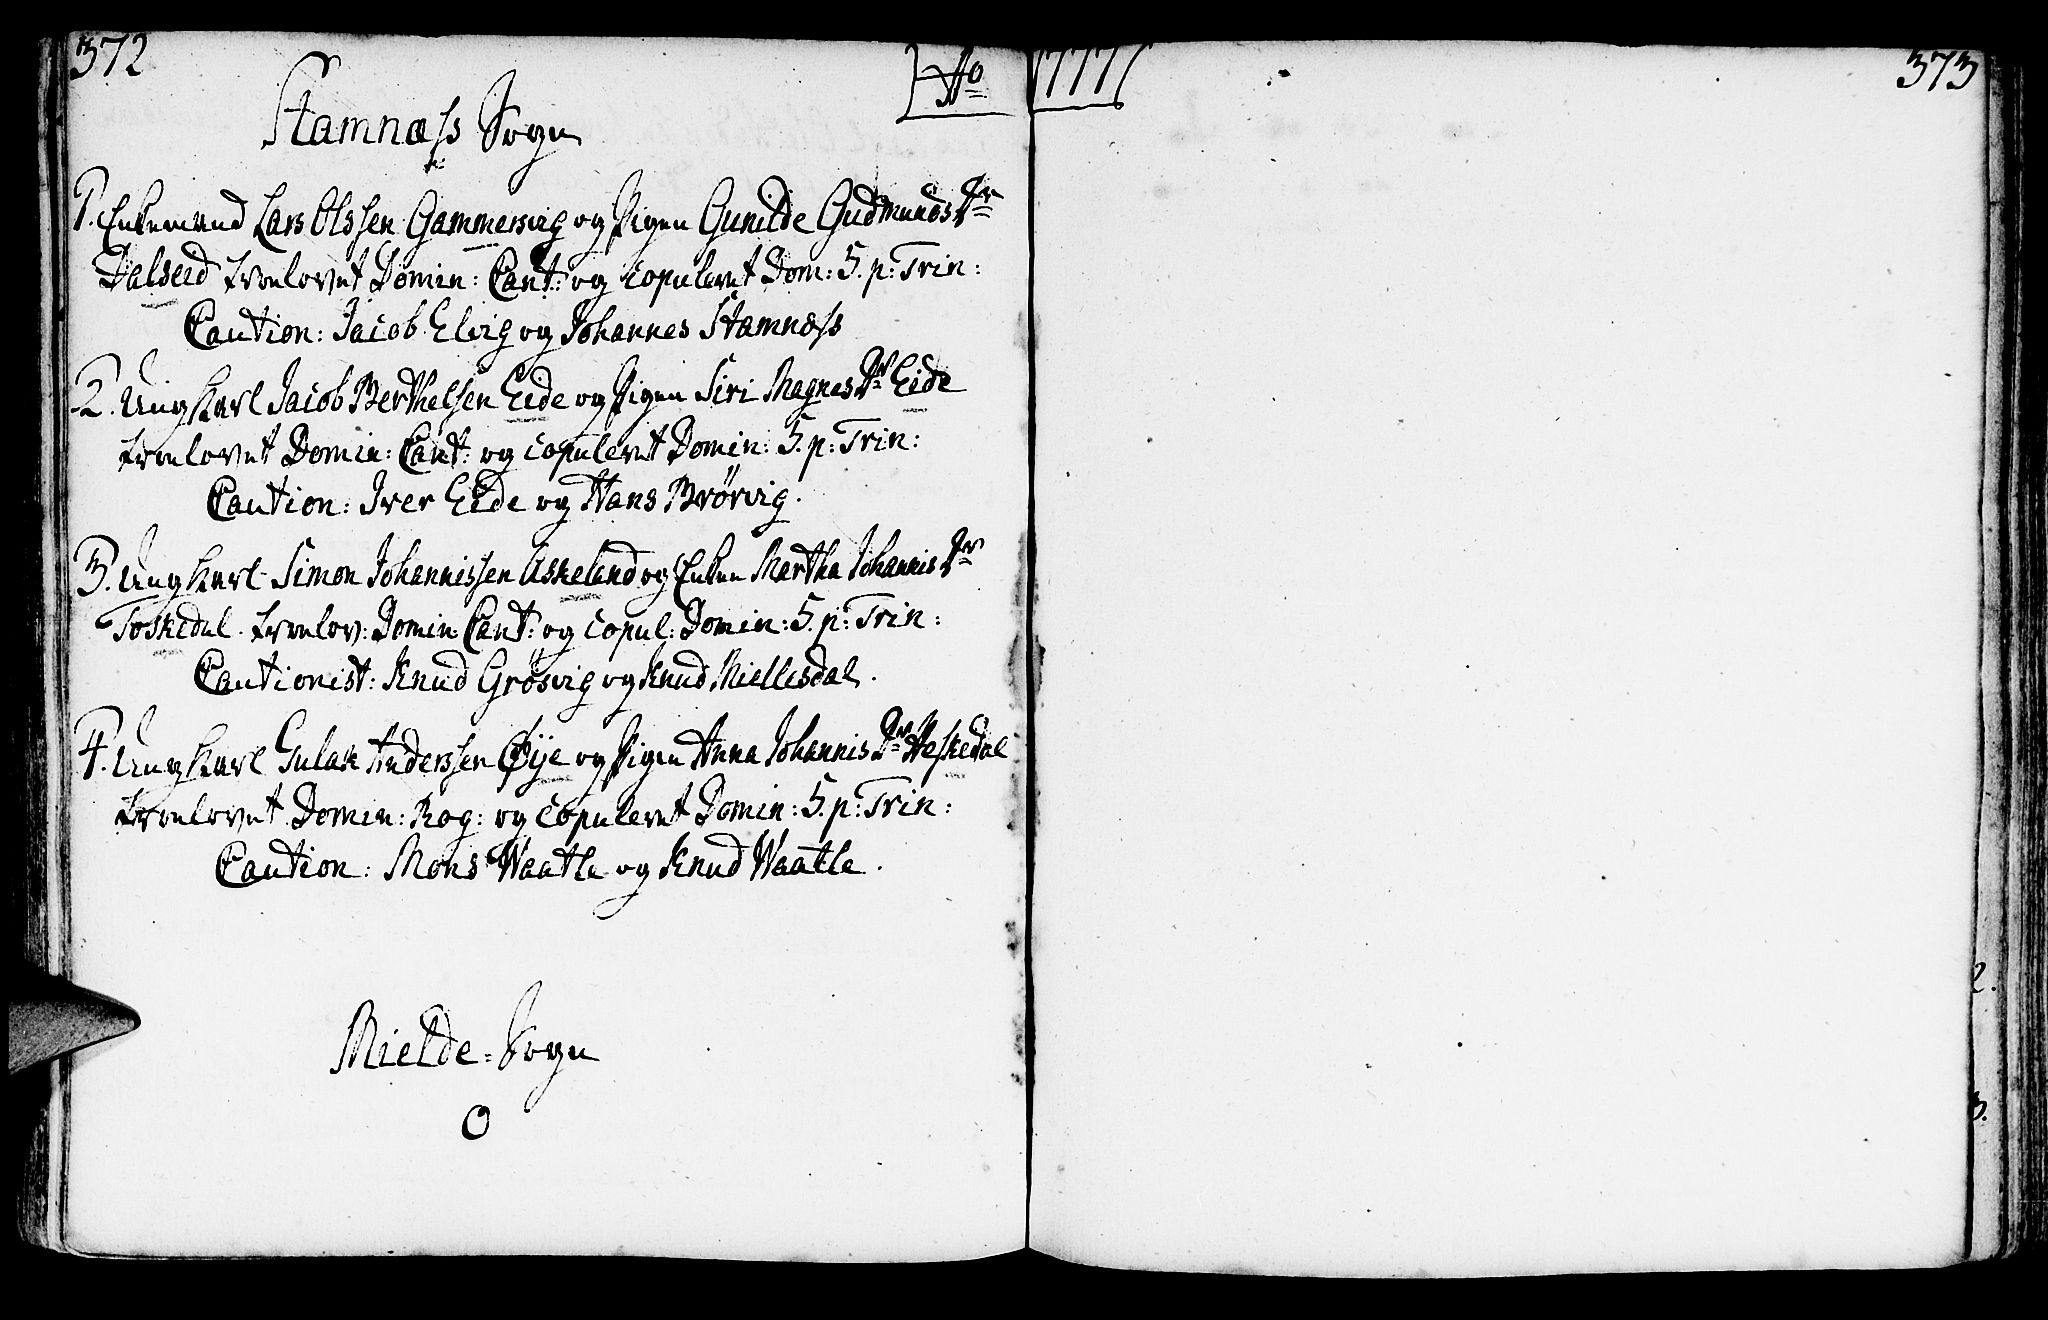 372
Ao 1777
373
Stamnæss Sogn
1. Enkemand Lars Olssen Gammersvig og Pigen Gunilde Gudmunds Dr
Dalseid troelovet Domin: Cant: og copuleret Dom: 5. p: Trin:
Caution: Jacob Elvig og Johannes Stamnæss
2. Ung Karl Jacob Berthelsen Eide og Pigen Siri Magnes Dr Eide
troelovet Domin: Cant: og copuleret Domin: 5. p: Trin:
Caution: Iver Eide og Hans Brörvig.
3. Ung Karl Simon Johannissen Askeland og Enken Martha Johannis Dr
Toskedal troelov: Domin: Cant: og copul: Domin: 5. p: Trin:
Cautionist: Knud Grösvig og Knud Miellesdal.
4. Ung Karl Gulak Anderssen Øije og Pigen Anna Johannis Dr Heskedal
troelovet Domin: Rog: og copuleret Domin: 5. p: Trin:
Caution: Mons Waatle og Knud Waatle.
Mielde=Sogn
O
2.
3.